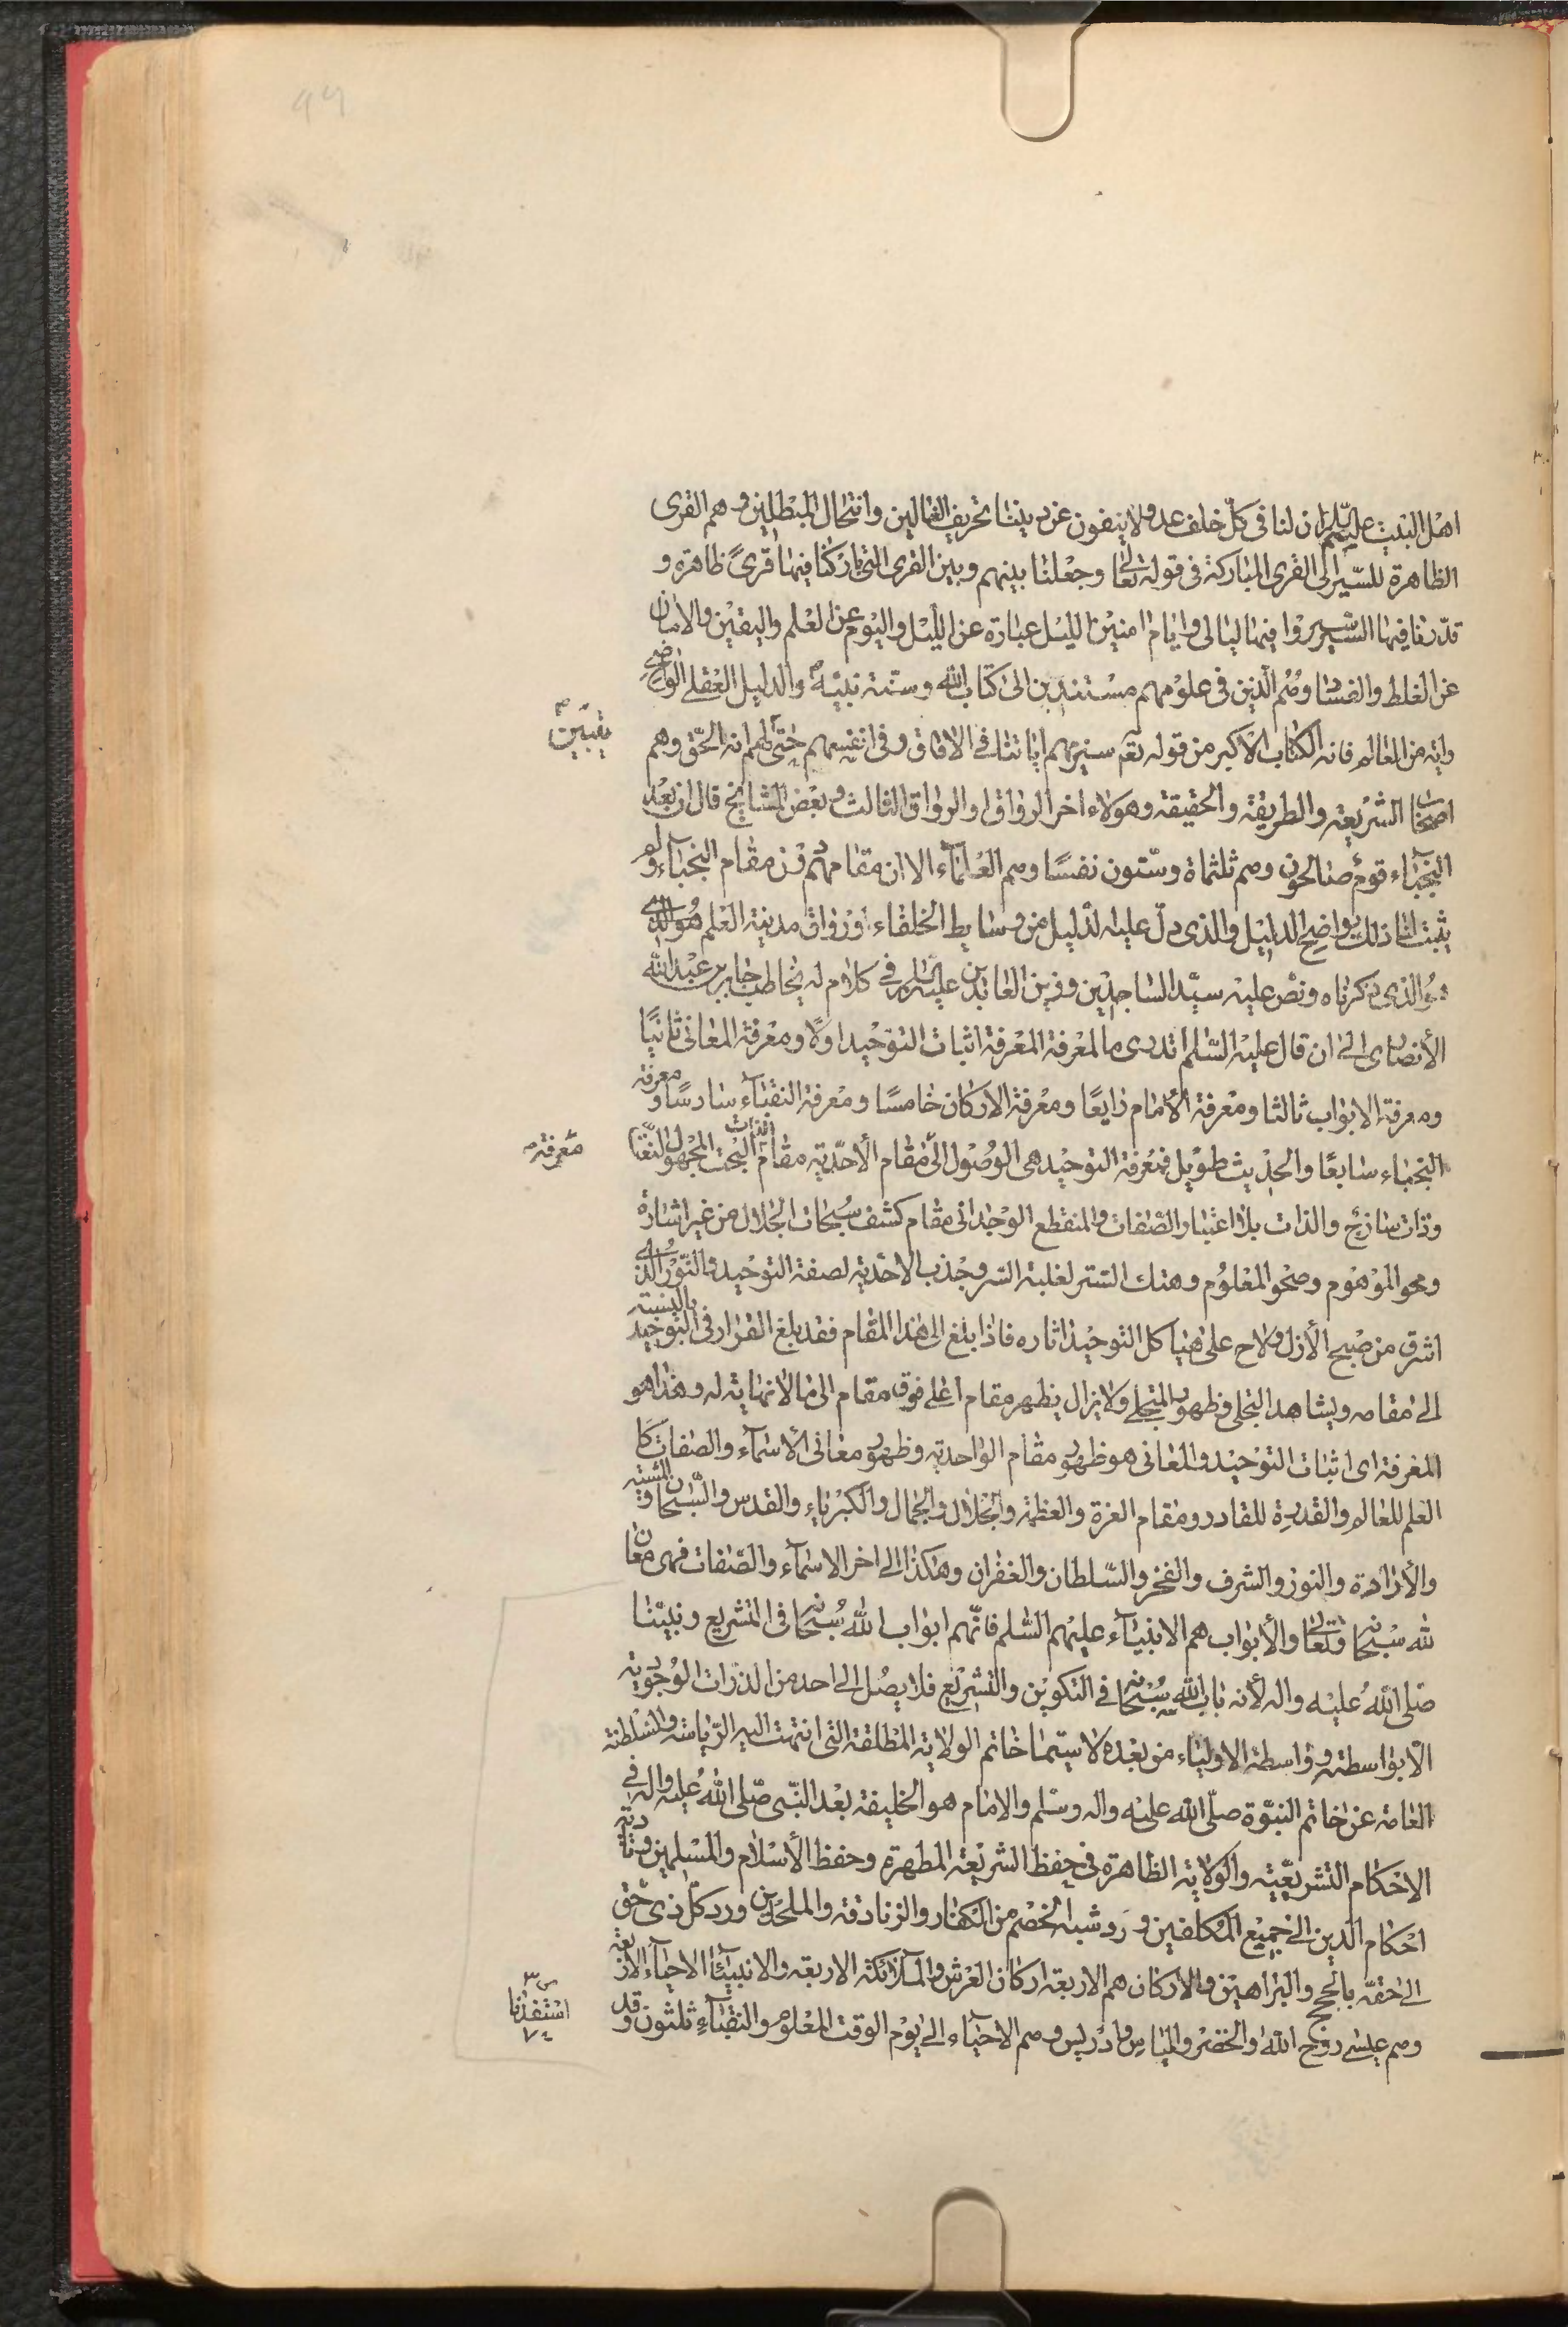 99
اهل البيت عليهم السلم ان لنا فى كل خلف عدولا ينفون عن ديننا تحريف الغالين وانتحال المبطلين وهم القرى
الظاهرة للسير الى القرى المباركة فى قوله تعالى وجعلنا بينهم وبين القرى التى باركنا فيها قرىً ظاهرة و
قدرنا فيها السير سيروا فيها ليالى وايام امنين الليل عبارة عن الليل واليوم عن العلم واليقين والامان
عن الغلط والفساد وهم الذين فى علومهم مستندين الى كتاب الله وسنة نبيه ص والدليل العقلى الواضح
واية من العالم فانه الكتاب الاكبر من قوله تعم سنريهم اياتنا فى الافاق وفى انفسهم حتى لهم انه الحق وهم
يتبين
اصحاب الشريعة والطريقة والحقيقة وهولاء اخر الرواق او الرواق الثالث وبعض المشايخ قال ان بعد
النجباء قوم صالحون وهم ثلثماة وستون نفسًا وهم العلماء الا ان مقامهم دون مقام النجباء ولو
يثبت لنا ذلك بواضح الدليل والذى دل عليه الدليل من وسايط الخلفاء ورواق مدينة العلم هو الذى
هو الذى ذكرناه ونص عليه سيد الساجدين وزين العابدين عليه السلم فى كلام له يخاطب جابر بن عبد الله
الأنصارى الى ان قال عليه السلم اتدرى ما المعرفة المعرفة اثبات التوحيد اولًا ومعرفة المعانى ثانيًا
ومعرفة الابواب ثالثا ومعرفة الأمام رابعًا ومعرفة الاركان خامسًا ومعرفة النقباء سادسًا ومعرفة
النجباء سابعًا والحديث طويل فمعرفة التوحيد هى الوصول الى مقام الأحدية مقام الذات البحت المجهول النعت
معرفة
وذات ساذج والذات بلا اعتبار الصفات والمنقطع الوجدانى مقام كشف سبحات الجلال من غير اشارة
ومحو الموهوم وصحو المعلوم وهتك الستر لغلبة السر وجذب الاحدية لصفة التوحيد والنور الذى
اشرق من صبح الأزل ولاح على هياكل التوحيد اثاره فاذا بلغ الى هذا المقام فقد بلغ القرار فى التوحيد بالنسبة
الى مقامه ويشاهد التجلى وظهور المتجلى ولا يزال يظهر مقام اعلى فوق مقام الى ما لا نهاية له وهذا هو
المعرفة اى اثبات التوحيد والمعانى هو ظهور مقام الواحدية وظهور معانى الأسماء والصفات كا
العلم للعالم والقدرة للقادر ومقام العزة والعظمة والجلال والجمال والكبرياء والقدس والسبحان والمشية
والأرادة والنور والشرف والفخر والسلطان والغفران وهكذا الى اخر الاسماء والصفات فهى معان
لله سبحانه وتعالى والأبواب هم الانبياء عليهم السلم فانهم ابواب الله سبحانه فى التشريع ونبينا
صلى الله عليه واله لأنه باب الله سبحانه فى التكوين والتشريع فلا يصل الى احد من الذرات الوجودية
الا بواسطته وواسطة الاولياء من بعده لا سيما خاتم الولاية المطلقة التى انتهت اليه الرياسة والسلطنة
العامة عن خاتم النبوة صلى الله عليه واله وسلم والامام هو الخليفة بعد النبى صلى الله عليه واله فى
الاحكام التشريعية والولاية الظاهرة فى حفظ الشريعة المطهرة وحفظ الأسلام والمسلمين وتادية
احكام الدين الى جميع المكلفين ورد شبه الخصم من الكفار والزنادقة والملحدين ورد كل ذى حق
الى حقه بالحجج والبراهين والاركان هم الاربعة اركان العرش والملائكة الاربعة والانبياء الاحياء الاربعة
وهم عيسى روح الله والخضر والياس وادريس وهم الاحياء الى يوم الوقت المعلوم والنقباء ثلثون وقد
استفدنا
٧٤